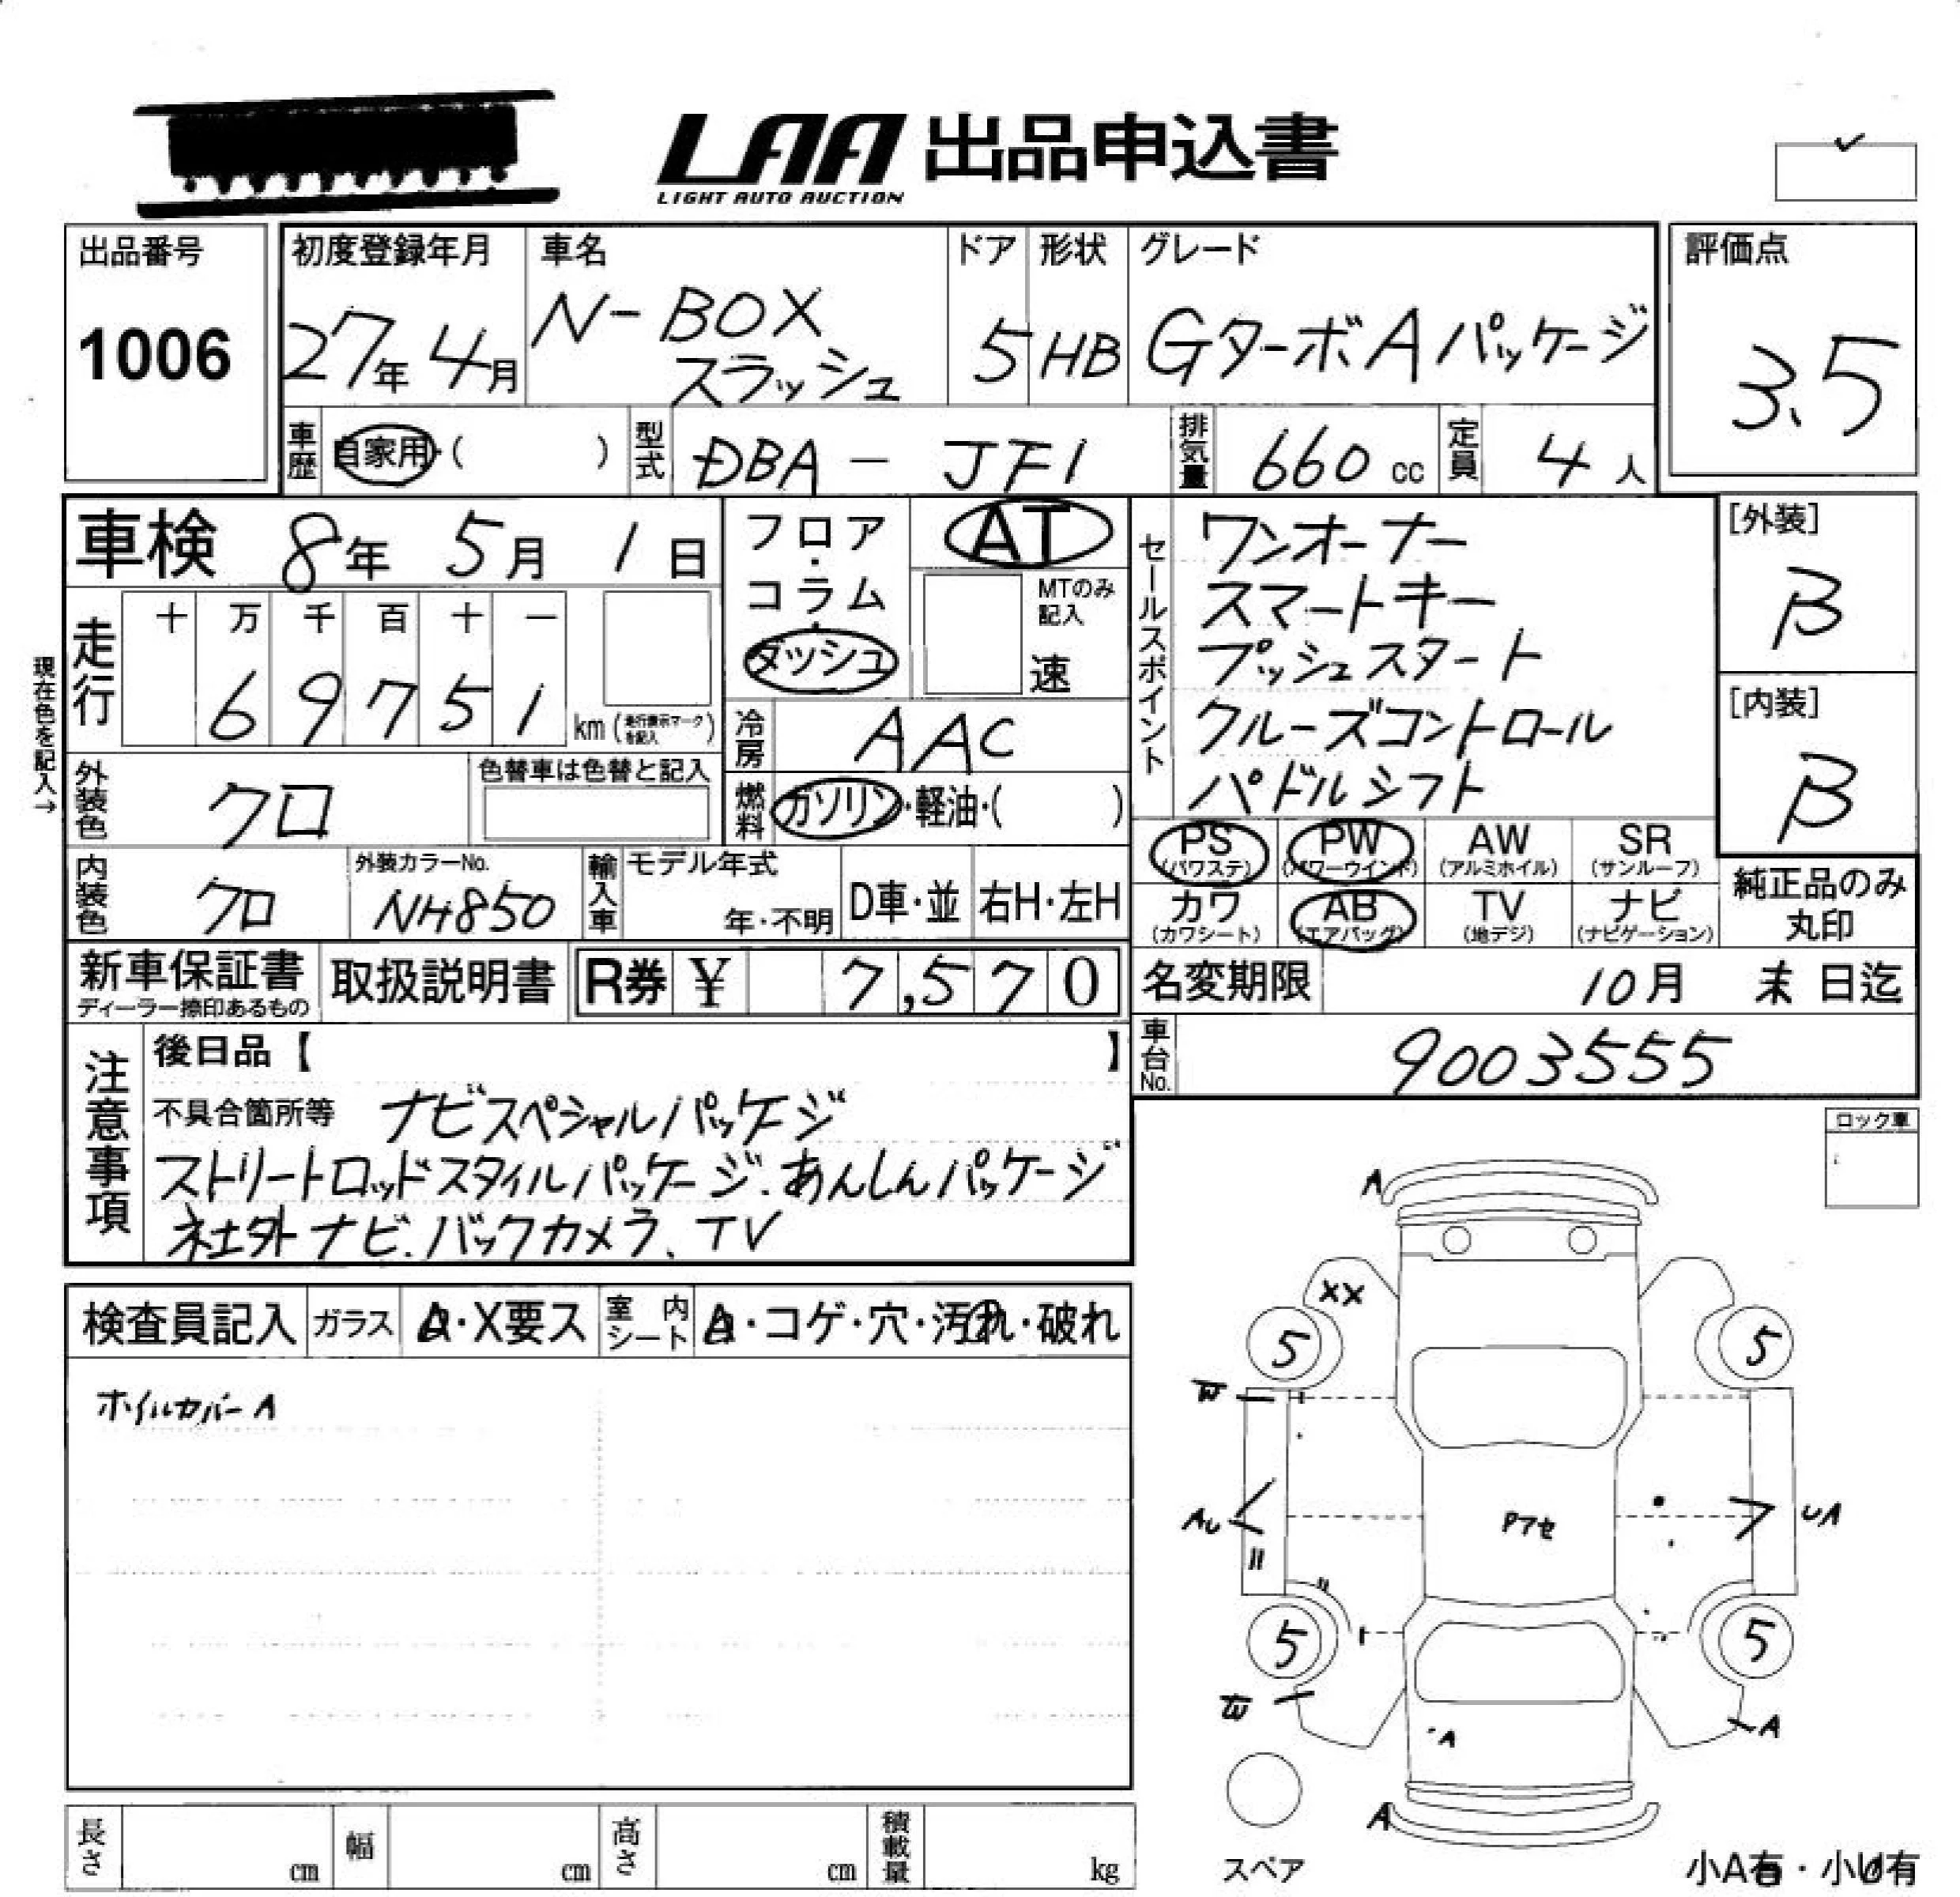 LAA 出品申込書
LIGHT AUTO AUCTION
出品番号
1006
初度登録年月
27年 4月
車名
N-BOX
スラッシュ
ドア
5
形状
HB
グレード
GターボAパッケージ
評価点
3.5
車歴 自家用・( )
型式 DBA - JF1
排気量 660 cc
定員 4 人
車検 8年 5月 1日
現在色を記入→
走行
十 万 千 百 十 一
6 9 7 5 1 km (走行表示マークを記入)
フロア・コラム・ダッシュ
AT
MTのみ記入
速
冷房 AAC
燃料 ガソリン・軽油・( )
セールスポイント
ワンオーナー
スマートキー
プッシュスタート
クルーズコントロール
パドルシフト
[外装]
B
[内装]
B
外装色 クロ
色替車は色替と記入
内装色 クロ
外装カラーNo.
NH850
輸入車
モデル年式
年・不明
D車・並
右H・左H
PS (パワステ)
PW (パワーウインド)
AW (アルミホイル)
SR (サンルーフ)
カワ (カワシート)
AB (エアバッグ)
TV (地デジ)
ナビ (ナビゲーション)
純正品のみ
丸印
新車保証書
ディーラー捺印あるもの
取扱説明書
R券 ¥ 7,570
名変期限 10月 末 日迄
車台No. 9003555
注意事項
後日品【 】
不具合箇所等 ナビスペシャルパッケージ
ストリートロッドスタイルパッケージ.あんしんパッケージ
社外ナビ.バックカメラ、TV
ロック車
検査員記入
ガラス
A・X要ス
室内シート
A・コゲ・穴・汚れ・破れ
ホイルカバーA
A
XX
5
5
W
AU
Pアセ
UA
5
5
W
A
A
A
スペア
小A有・小U有
長さ cm
幅 cm
高さ cm
積載量 kg